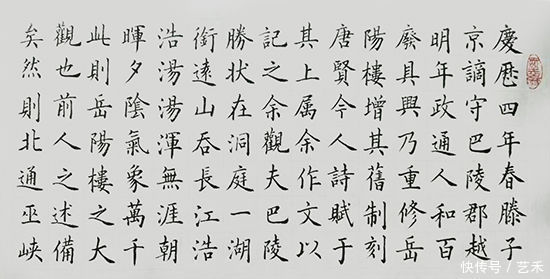 慶曆四年春滕子
京謫守巴陵郡越
明年政通人和百
廢具興乃重修岳
陽樓增其舊制刻
唐賢今人詩賦于
其上属余作文以
記之余觀夫巴陵
勝狀在洞庭一湖
銜遠山吞長江浩
浩湯湯渾無涯朝
暉夕陰氣象萬千
此則岳陽樓之大
觀也前人之述備
矣然則北通巫峽
快传号 / 艺禾